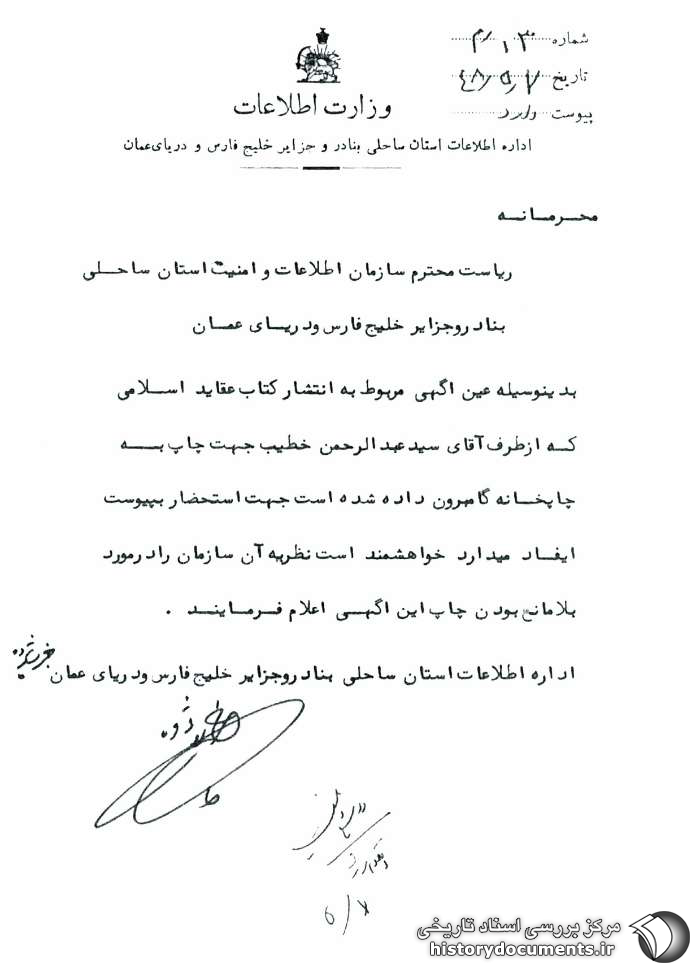 شماره ۱۳۰/م
تاریخ ۴۸/۵/۷
پیوست دارد
وزارت اطلاعات
اداره اطلاعات استان ساحلی بنادر و جزایر خلیج فارس و دریای عمان
محرمانه
ریاست محترم سازمان اطلاعات و امنیت استان ساحلی
بنادر و جزایر خلیج فارس و دریای عمان
بدینوسیله عین اگهی مربوط به انتشار کتاب عقاید اسلامی
که از طرف آقای سید عبدالرحمن خطیب جهت چاپ به
چاپخانه گامبرون داده شده است جهت استحضار بپیوست
ایفاد میدارد خواهشمند است نظریه آن سازمان را در مورد
بلامانع بودن چاپ این اگهی اعلام فرمایند .
اداره اطلاعات استان ساحلی بنادر و جزایر خلیج فارس و دریای عمان
مرکز بررسی اسناد تاریخی
historydocuments.ir